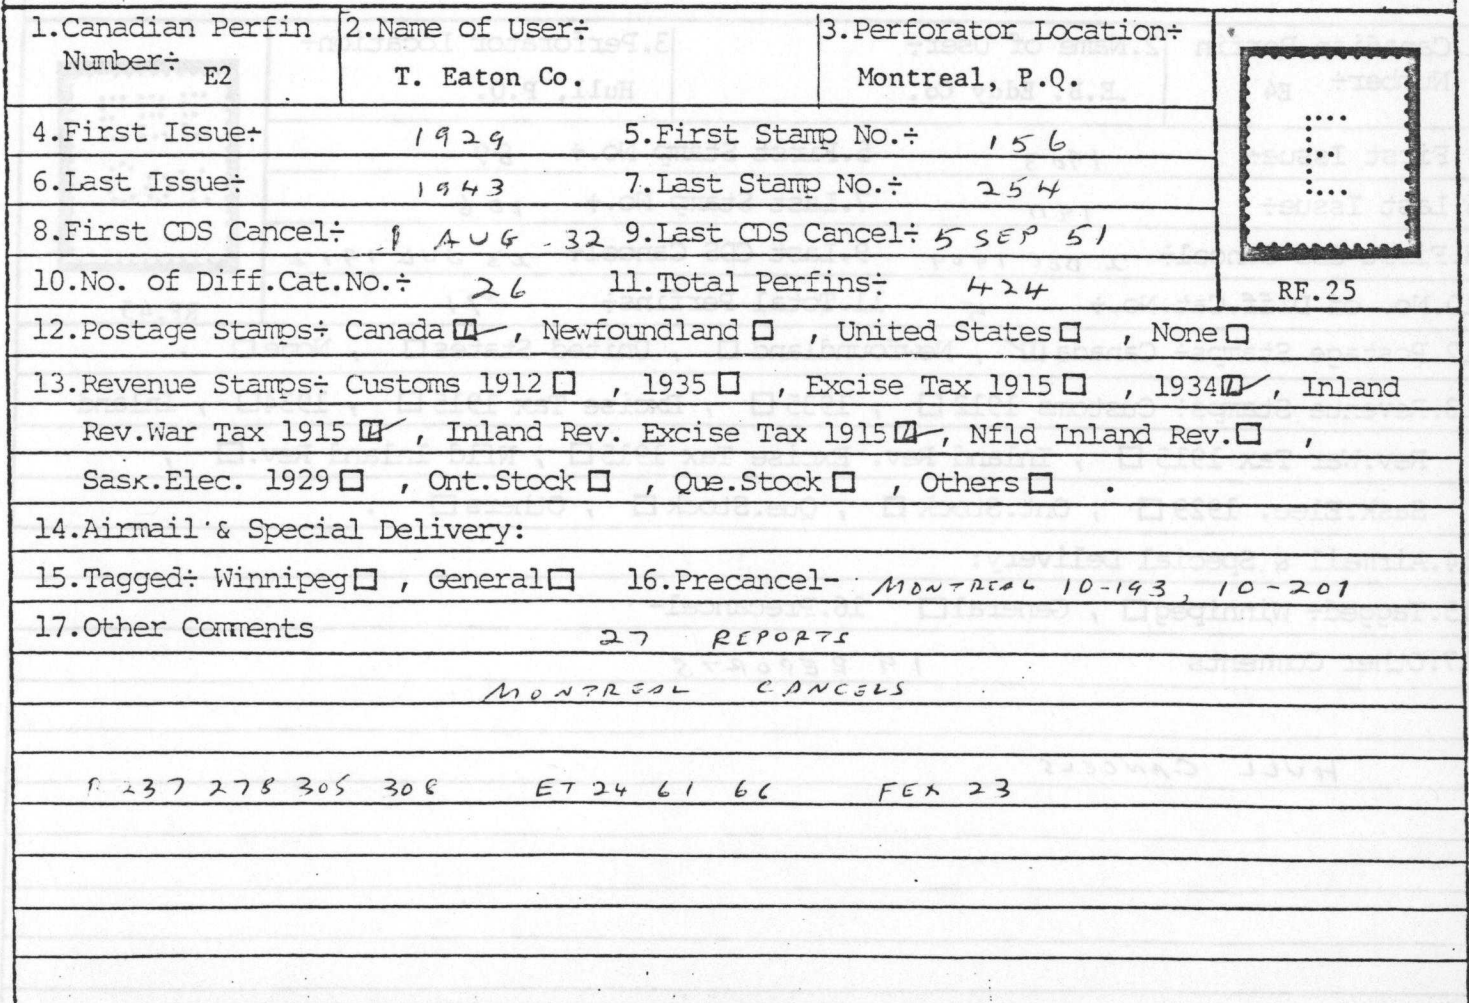 1.Canadian Perfin Number÷ E2
2.Name of User÷ T. Eaton Co.
3.Perforator Location÷ Montreal, P.Q.
RF.25
4.First Issue÷ 1929 5.First Stamp No.÷ 156
6.Last Issue÷ 1943 7.Last Stamp No.÷ 254
8.First CDS Cancel÷ 1 AUG -32 9.Last CDS Cancel÷ 5 SEP 51
10.No. of Diff.Cat.No.÷ 26 11.Total Perfins÷ 424
12.Postage Stamps÷ Canada☑, Newfoundland ☐ United States☐ , None☐
13.Revenue Stamps÷ Customs 1912☐ , 1935☐ , Excise Tax 1915☐ , 1934☑ Inland
Rev.War Tax 1915☑ , Inland Rev. Excise Tax 1915☑, Nfld Inland Rev.☐ ,
Sask.Elec. 1929☐ , Ont.Stock☐ , Que.Stock☐ , Others☐ .
14.Airmail & Special Delivery:
15.Tagged÷ Winnipeg☐ , General☐ 16.Precancel- MONTREAL 10-193, 10-201
17.Other Comments 27 REPORTS
MONTREAL CANCELS
237 278 305 306 ET 24 61 66 FEX 23